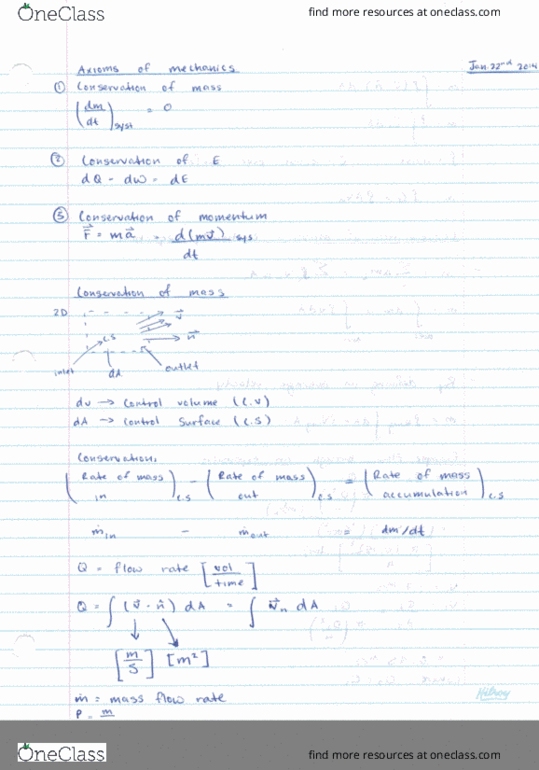 OneClass find more resources at oneclass.com
Axioms of mechanics Jan. 22nd 2014
① Conservation of mass
(dm/dt)syst = 0
② Conservation of E
dQ - dW = dE
③ Conservation of momentum
F⃗ = ma⃗ = d(mv⃗)sys/dt
Conservation of mass
2D v⃗
c.s n⃗
inlet dA outlet
dv → Control volume (C.V)
dA → Control Surface (C.S)
Conservation,
(Rate of mass in)c.s - (Rate of mass out)c.s = (Rate of mass accumulation)c.s
ṁin - ṁout = dm/dt
Q = flow rate [vol/time]
Q = ∫(v⃗ · n̂) dA = ∫ v⃗n dA
[m/s] [m²]
ṁ = mass flow rate
Hilroy
P = m
OneClass find more resources at oneclass.com